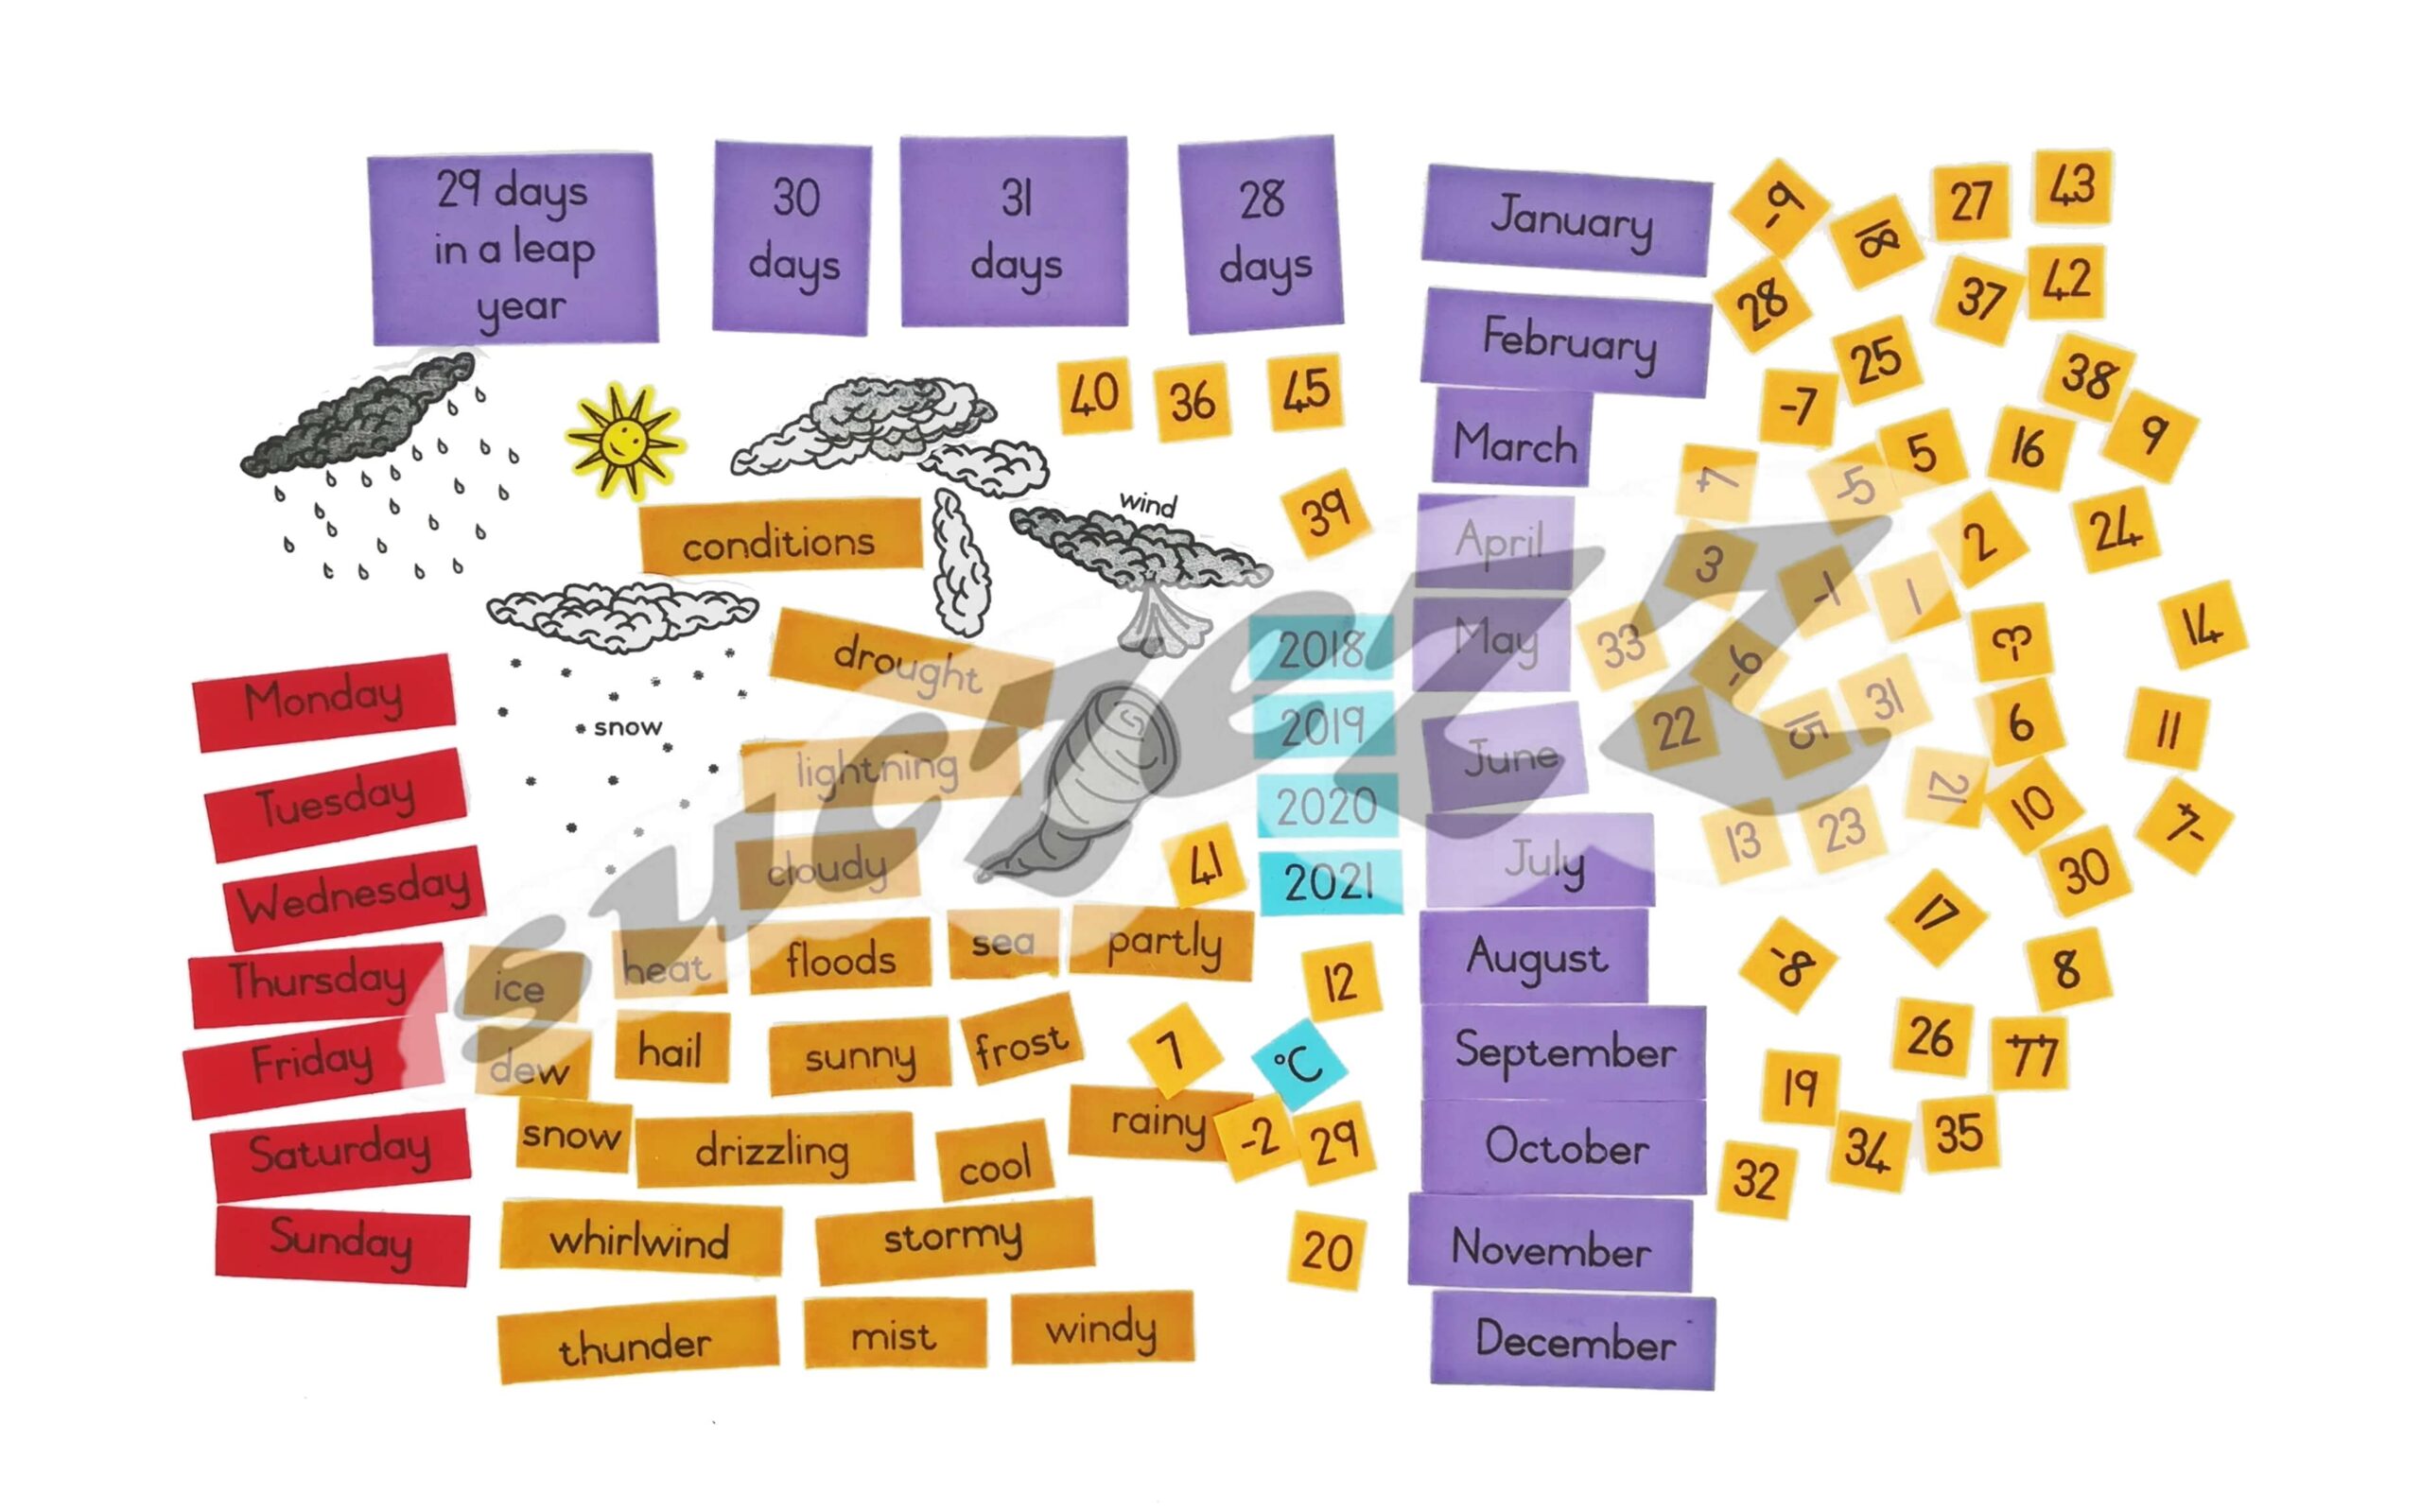 29 days
in a leap
year
30
days
31
days
28
days
January
-9
18
27
43
February
28
37
42
40
36
45
25
38
March
-7
9
5
16
-5
wind
conditions
39
April
3
2
24
-1
1
drought
2018
May
33
-6
-3
14
Monday
snow
2019
June
22
15
31
6
11
lightning
2020
21
10
Tuesday
13
23
cloudy
41
2021
July
30
Wednesday
17
ice
heat
floods
sea
partly
August
-8
8
Thursday
12
Friday
dew
hail
sunny
frost
7
°C
September
26
19
Saturday
snow
drizzling
cool
rainy
-2
29
October
32
34
35
Sunday
whirlwind
stormy
20
November
thunder
mist
windy
December
suczezz